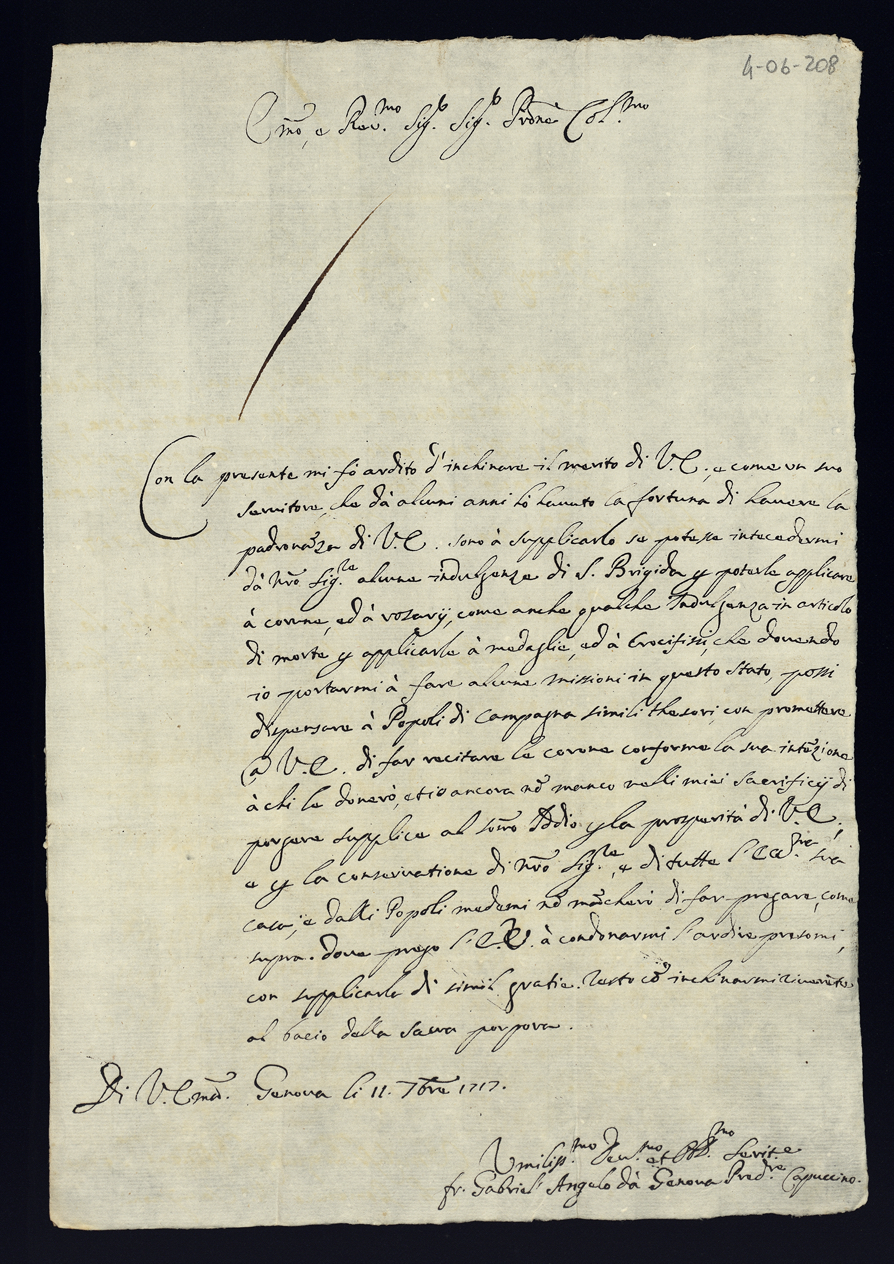 4-06-208
Emo, e Rev.mo Sig.r Sig.r Prōne Col.mo
Con la presente mi fò ardito d'inchinare il merito di V.E., e come un suo
servitore, che dà alcuni anni hò havuto la fortuna di havere la
padronāza di V.E. sono à supplicarlo se potesse intecedermi
dà Nrō Sig.re alcune indulgenze di S. Brigida p poterle applicare
à corone, ed à rosarij, come anche qualche Indulgenza in articolo
di morte p applicarle à medaglie, ed à Crocifissi, che dovendo
io portarmi à fare alcune missioni in questo stato, possi
dispensare à Popoli di Campagna simili thesori, con promettere
à V.E. di far recitare le corone conforme la sua intēzione
à chi le donerò, et io ancora nō manco nelli miei sacrificij di
porgere supplice al som̄o Iddio p la prosperità di V.E.,
e p la conservatione di Nrō Sig.re, e di tutte l'Ecc.ma sua
casa, e dalli Popoli medemi nō mācherò di far pregare, come
supra. Dove prego l'E.V. à condonarmi l'ardire presomi,
con supplicarla di simil gratie. Resto cō inchinarmi riverēte
al bacio della sacra porpora.
Di V. Emā. Genova li 11. 7bre 1717.
Umiliss.mo Dev.mo et Obb.mo Servit.e
fr. Gabriel' Angelo dà Genova Pred.re Capuccino.